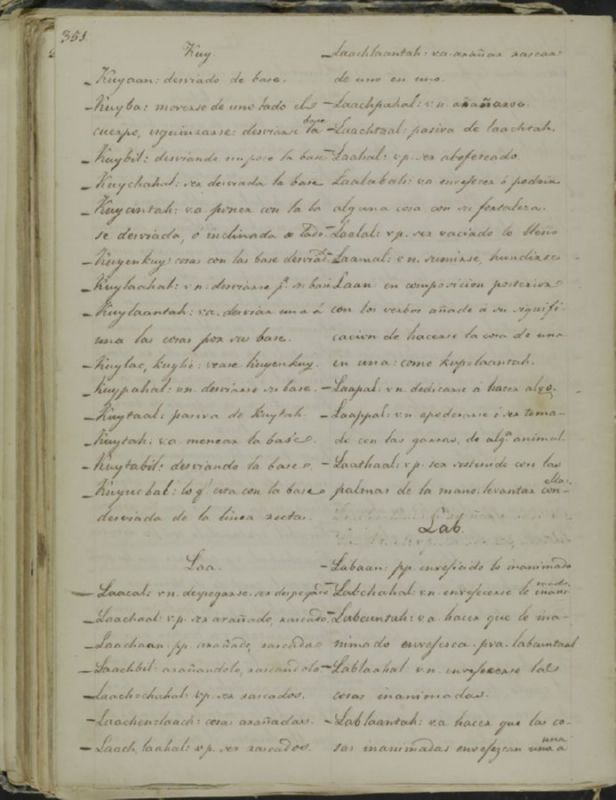 351.
Kuy.
Kuyaan: desviado de base.
Kuyba: moverse de uno lado el
cuerpo, esquinzarse: desviarse la base
Kuybil: desviando un poco la base
Kuychahal: ser desviada la base
Kuycintah: va poner con la ba
se desviada, ó inclinada a lado.
Kuyenkuy: cosas con las base desviada
Kuylaahal: vn: desviarse pr. su base
Kuylaantah: va. desviar una á
una las cosas por su base.
Kuylac, kuylic: vease Kuyenkuy.
Kuypahal: vn. desviarse su base.
Kuytaal: pasiva de Kuytah.
Kuytah: va menear la base.
Kuytabil: desviando la base.
Kuyucbal: lo q' esta con la base
desviada de la linea recta.
Laa.
Laacal: vn. despegarse. ser despegado
Laachaal vp. ser arañado, rascado,
Laachaan: pp. arañado, rascado
Laachbil: arañandolo, rascandolo
Laachchahal: vp. ser rascados.
Laachenlaach: cosas arañadas.
Laachlaahal: vp. ser rascados.
Laachlaantah: va arañar rascar
de uno en uno.
Laachpahal: vn arañarse.
Laachtzal: pasiva de laachtah.
Laahal: vp. ser abofeteado.
Laalabali: va envejecer ó podrir
alguna cosa con su fortaleza.
Laalal: vp. ser vaciado lo lleno
Laamal: vn. sumirse, hundirse
Laan en composicion posterior
con los verbos añade á su signifi
cacion de hacerse la cosa de una
en una: como kupulaantah.
Laapal: vn. dedicarse á hacer algo.
Laappal: vn apoderarse ó ser toma-
do con las garras, de algn animal.
Laathaal: vp. ser sostenido con las
palmas de la mano. levantar con ellas.
Lab.
Labaan: pp. envejecido lo inanimado
Labchahal: vn. envejecerse lo inanimado.
Labcuntah: va hacer que lo ina-
nimado envejesca. pva. labcuntaal
Lablaahal vn. envejecerse las
cosas inanimadas.
Lablaantah: va hacer que las co-
sas inanimadas envejezcan una a una